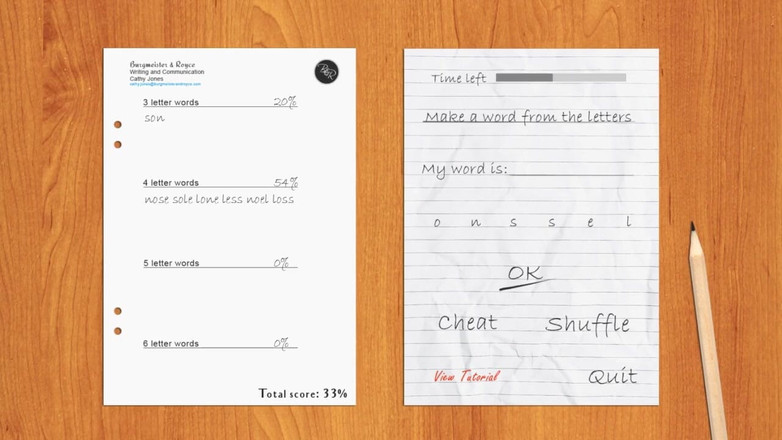 Burgmeister & Royce
Writing and Communication
Cathy Jones
cathy.jones@burgmeisterandroyce.com
B&R
3 letter words 20%
son
4 letter words 54%
nose sole lone less noel loss
5 letter words 0%
6 letter words 0%
Total score: 33%
Time left
Make a word from the letters
My word is:
o n s s e l
OK
Cheat Shuffle
View Tutorial Quit